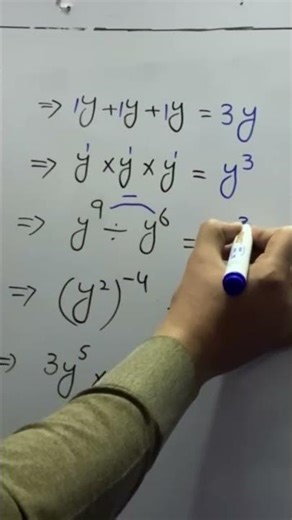 ⇒ 1y + 1y + 1y = 3y
⇒ y¹ × y¹ × y¹ = y³
⇒ y⁹ ÷ y⁶ =
⇒ (y²)⁻⁴
⇒ 3y⁵